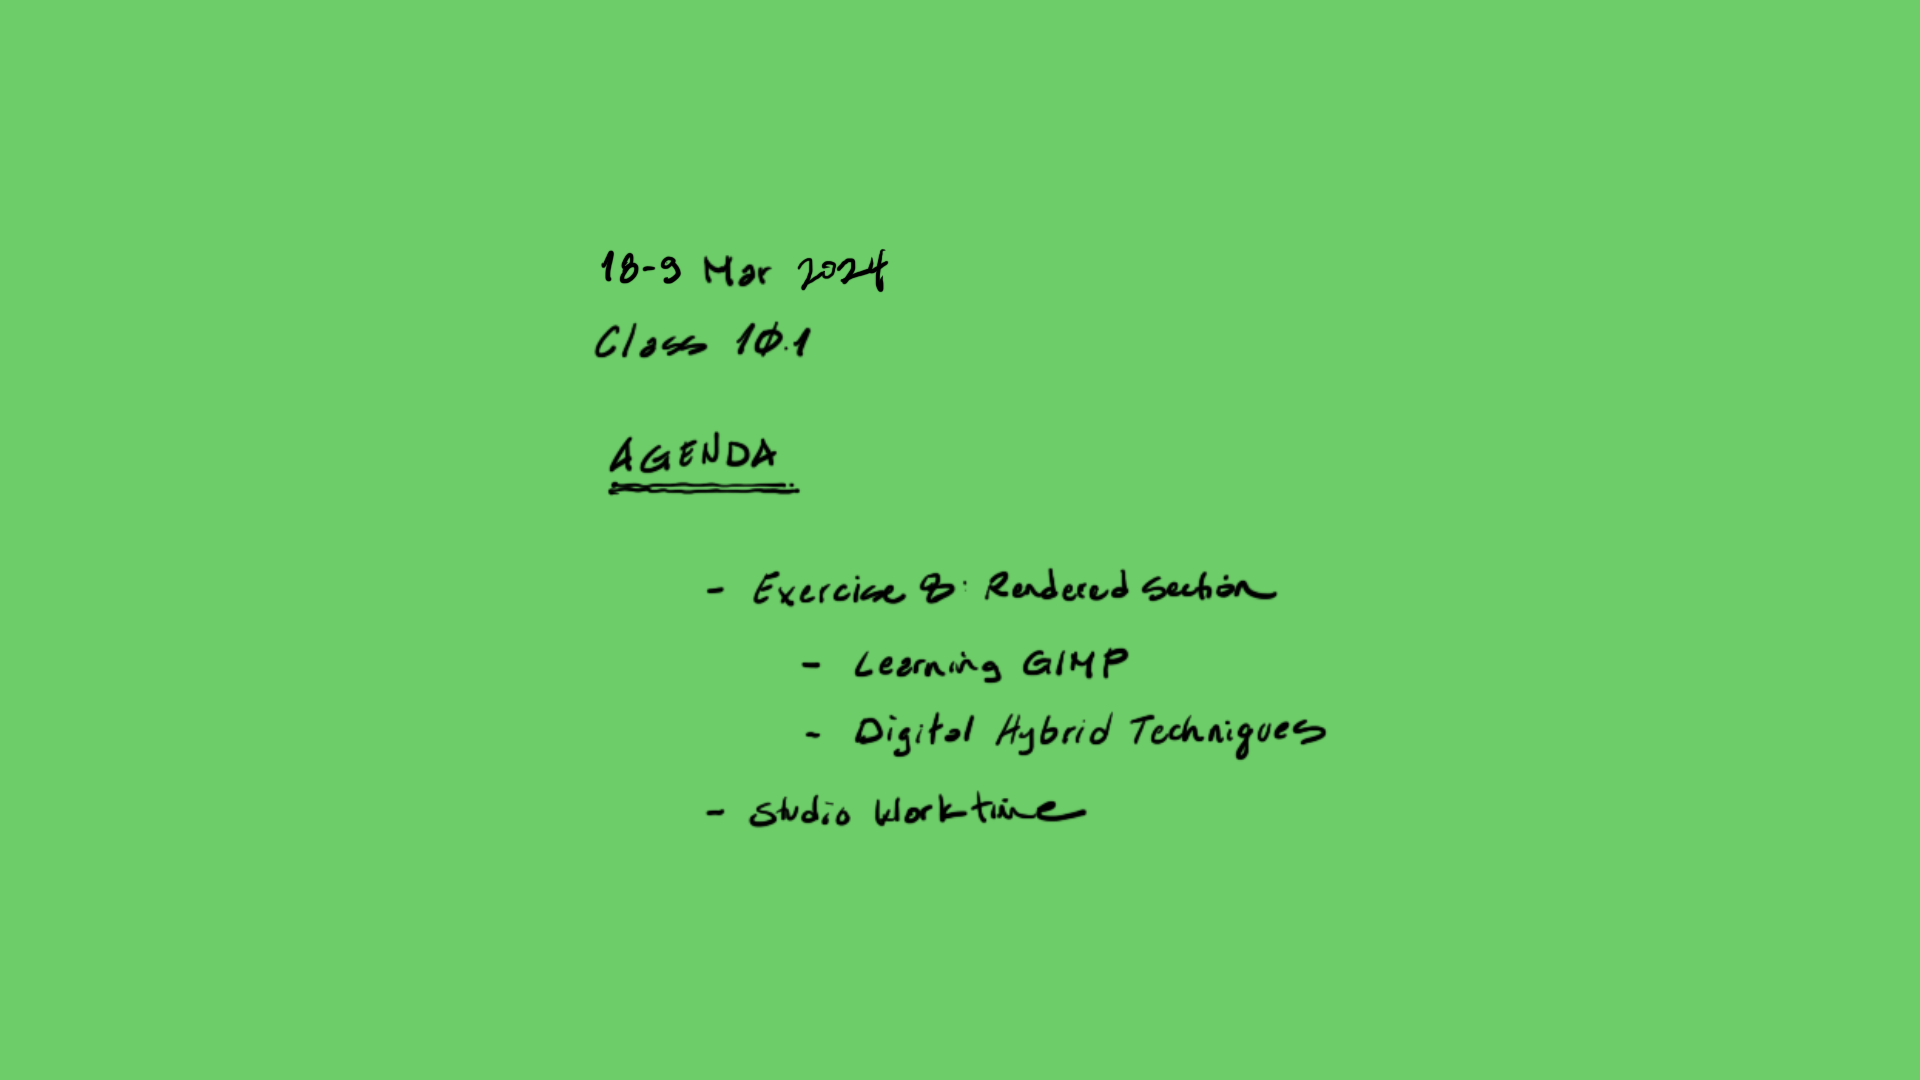 18-9 Mar 2024
Class 10.1
AGENDA
- Exercise 8: Rendered Section
- Learning GIMP
- Digital Hybrid Techniques
- Studio Work time